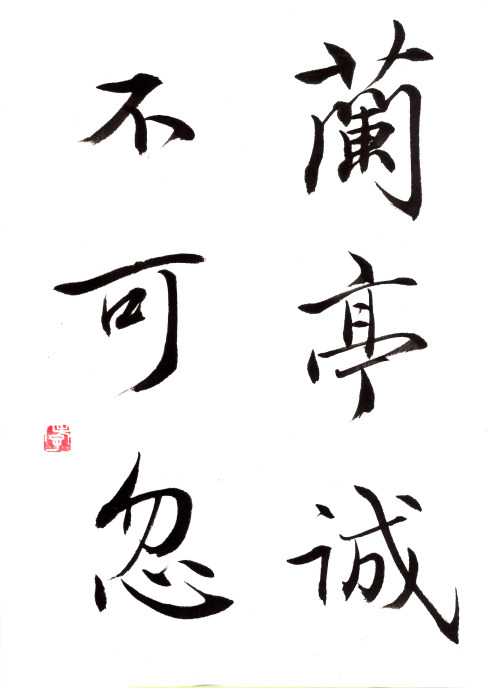 蘭亭誠
不可忽